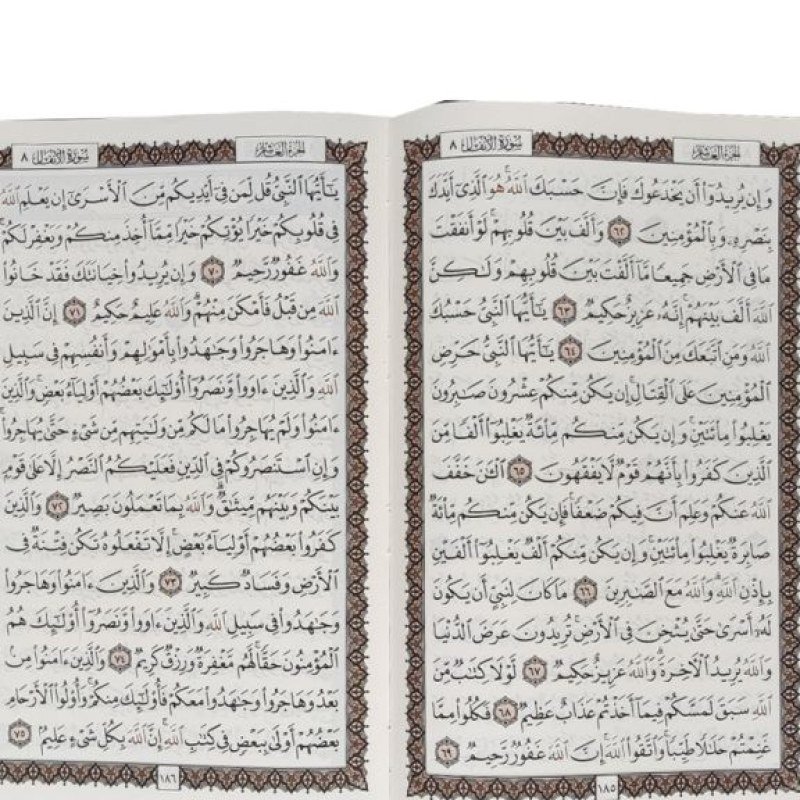 سُورَةُ الأَنفَالِ ٨
الجُزءُ العَاشِرُ
وَإِن يُرِيدُوٓاْ أَن يَخۡدَعُوكَ فَإِنَّ حَسۡبَكَ ٱللَّهُۚ هُوَ ٱلَّذِيٓ أَيَّدَكَ
بِنَصۡرِهِۦ وَبِٱلۡمُؤۡمِنِينَ ٦٢ وَأَلَّفَ بَيۡنَ قُلُوبِهِمۡۚ لَوۡ أَنفَقۡتَ
مَا فِي ٱلۡأَرۡضِ جَمِيعٗا مَّآ أَلَّفۡتَ بَيۡنَ قُلُوبِهِمۡ وَلَٰكِنَّ
ٱللَّهَ أَلَّفَ بَيۡنَهُمۡۚ إِنَّهُۥ عَزِيزٌ حَكِيمٞ ٦٣ يَٰٓأَيُّهَا ٱلنَّبِيُّ حَسۡبُكَ
ٱللَّهُ وَمَنِ ٱتَّبَعَكَ مِنَ ٱلۡمُؤۡمِنِينَ ٦٤ يَٰٓأَيُّهَا ٱلنَّبِيُّ حَرِّضِ
ٱلۡمُؤۡمِنِينَ عَلَى ٱلۡقِتَالِۚ إِن يَكُن مِّنكُمۡ عِشۡرُونَ صَٰبِرُونَ
يَغۡلِبُواْ مِاْئَتَيۡنِۚ وَإِن يَكُن مِّنكُم مِّاْئَةٞ يَغۡلِبُوٓاْ أَلۡفٗا مِّنَ
ٱلَّذِينَ كَفَرُواْ بِأَنَّهُمۡ قَوۡمٞ لَّا يَفۡقَهُونَ ٦٥ ٱلۡـَٰٔنَ خَفَّفَ
ٱللَّهُ عَنكُمۡ وَعَلِمَ أَنَّ فِيكُمۡ ضَعۡفٗاۚ فَإِن يَكُن مِّنكُم مِّاْئَةٞ
صَابِرَةٞ يَغۡلِبُواْ مِاْئَتَيۡنِۚ وَإِن يَكُن مِّنكُمۡ أَلۡفٞ يَغۡلِبُوٓاْ أَلۡفَيۡنِ
بِإِذۡنِ ٱللَّهِۗ وَٱللَّهُ مَعَ ٱلصَّٰبِرِينَ ٦٦ مَا كَانَ لِنَبِيٍّ أَن يَكُونَ
لَهُۥٓ أَسۡرَىٰ حَتَّىٰ يُثۡخِنَ فِي ٱلۡأَرۡضِۚ تُرِيدُونَ عَرَضَ ٱلدُّنۡيَا
وَٱللَّهُ يُرِيدُ ٱلۡأٓخِرَةَۗ وَٱللَّهُ عَزِيزٌ حَكِيمٞ ٦٧ لَّوۡلَا كِتَٰبٞ مِّنَ
ٱللَّهِ سَبَقَ لَمَسَّكُمۡ فِيمَآ أَخَذۡتُمۡ عَذَابٌ عَظِيمٞ ٦٨ فَكُلُواْ مِمَّا
غَنِمۡتُمۡ حَلَٰلٗا طَيِّبٗاۚ وَٱتَّقُواْ ٱللَّهَۚ إِنَّ ٱللَّهَ غَفُورٞ رَّحِيمٞ ٦٩
١٨٥
سُورَةُ الأَنفَالِ ٨
الجُزءُ العَاشِرُ
يَٰٓأَيُّهَا ٱلنَّبِيُّ قُل لِّمَن فِيٓ أَيۡدِيكُم مِّنَ ٱلۡأَسۡرَىٰٓ إِن يَعۡلَمِ ٱللَّهُ
فِي قُلُوبِكُمۡ خَيۡرٗا يُؤۡتِكُمۡ خَيۡرٗا مِّمَّآ أُخِذَ مِنكُمۡ وَيَغۡفِرۡ لَكُمۡۚ
وَٱللَّهُ غَفُورٞ رَّحِيمٞ ٧٠ وَإِن يُرِيدُواْ خِيَانَتَكَ فَقَدۡ خَانُواْ
ٱللَّهَ مِن قَبۡلُ فَأَمۡكَنَ مِنۡهُمۡۗ وَٱللَّهُ عَلِيمٌ حَكِيمٌ ٧١ إِنَّ ٱلَّذِينَ
ءَامَنُواْ وَهَاجَرُواْ وَجَٰهَدُواْ بِأَمۡوَٰلِهِمۡ وَأَنفُسِهِمۡ فِي سَبِيلِ
ٱللَّهِ وَٱلَّذِينَ ءَاوَواْ وَّنَصَرُوٓاْ أُوْلَٰٓئِكَ بَعۡضُهُمۡ أَوۡلِيَآءُ بَعۡضٖۚ وَٱلَّذِينَ
ءَامَنُواْ وَلَمۡ يُهَاجِرُواْ مَا لَكُم مِّن وَلَٰيَتِهِم مِّن شَيۡءٍ حَتَّىٰ يُهَاجِرُواْۚ
وَإِنِ ٱسۡتَنصَرُوكُمۡ فِي ٱلدِّينِ فَعَلَيۡكُمُ ٱلنَّصۡرُ إِلَّا عَلَىٰ قَوۡمِۭ
بَيۡنَكُمۡ وَبَيۡنَهُم مِّيثَٰقٞۗ وَٱللَّهُ بِمَا تَعۡمَلُونَ بَصِيرٞ ٧٢ وَٱلَّذِينَ
كَفَرُواْ بَعۡضُهُمۡ أَوۡلِيَآءُ بَعۡضٍۚ إِلَّا تَفۡعَلُوهُ تَكُن فِتۡنَةٞ فِي
ٱلۡأَرۡضِ وَفَسَادٞ كَبِيرٞ ٧٣ وَٱلَّذِينَ ءَامَنُواْ وَهَاجَرُواْ
وَجَٰهَدُواْ فِي سَبِيلِ ٱللَّهِ وَٱلَّذِينَ ءَاوَواْ وَّنَصَرُوٓاْ أُوْلَٰٓئِكَ هُمُ
ٱلۡمُؤۡمِنُونَ حَقّٗاۚ لَّهُم مَّغۡفِرَةٞ وَرِزۡقٞ كَرِيمٞ ٧٤ وَٱلَّذِينَ ءَامَنُواْ مِنۢ
بَعۡدُ وَهَاجَرُواْ وَجَٰهَدُواْ مَعَكُمۡ فَأُوْلَٰٓئِكَ مِنكُمۡۚ وَأُوْلُواْ ٱلۡأَرۡحَامِ
بَعۡضُهُمۡ أَوۡلَىٰ بِبَعۡضٖ فِي كِتَٰبِ ٱللَّهِۚ إِنَّ ٱللَّهَ بِكُلِّ شَيۡءٍ عَلِيمُۢ ٧٥
١٨٦